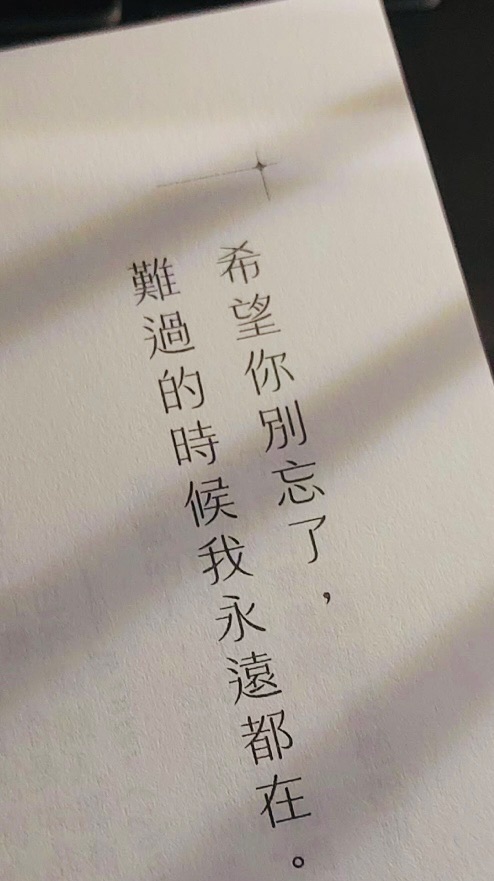 希望你別忘了，
難過的時候我永遠都在。